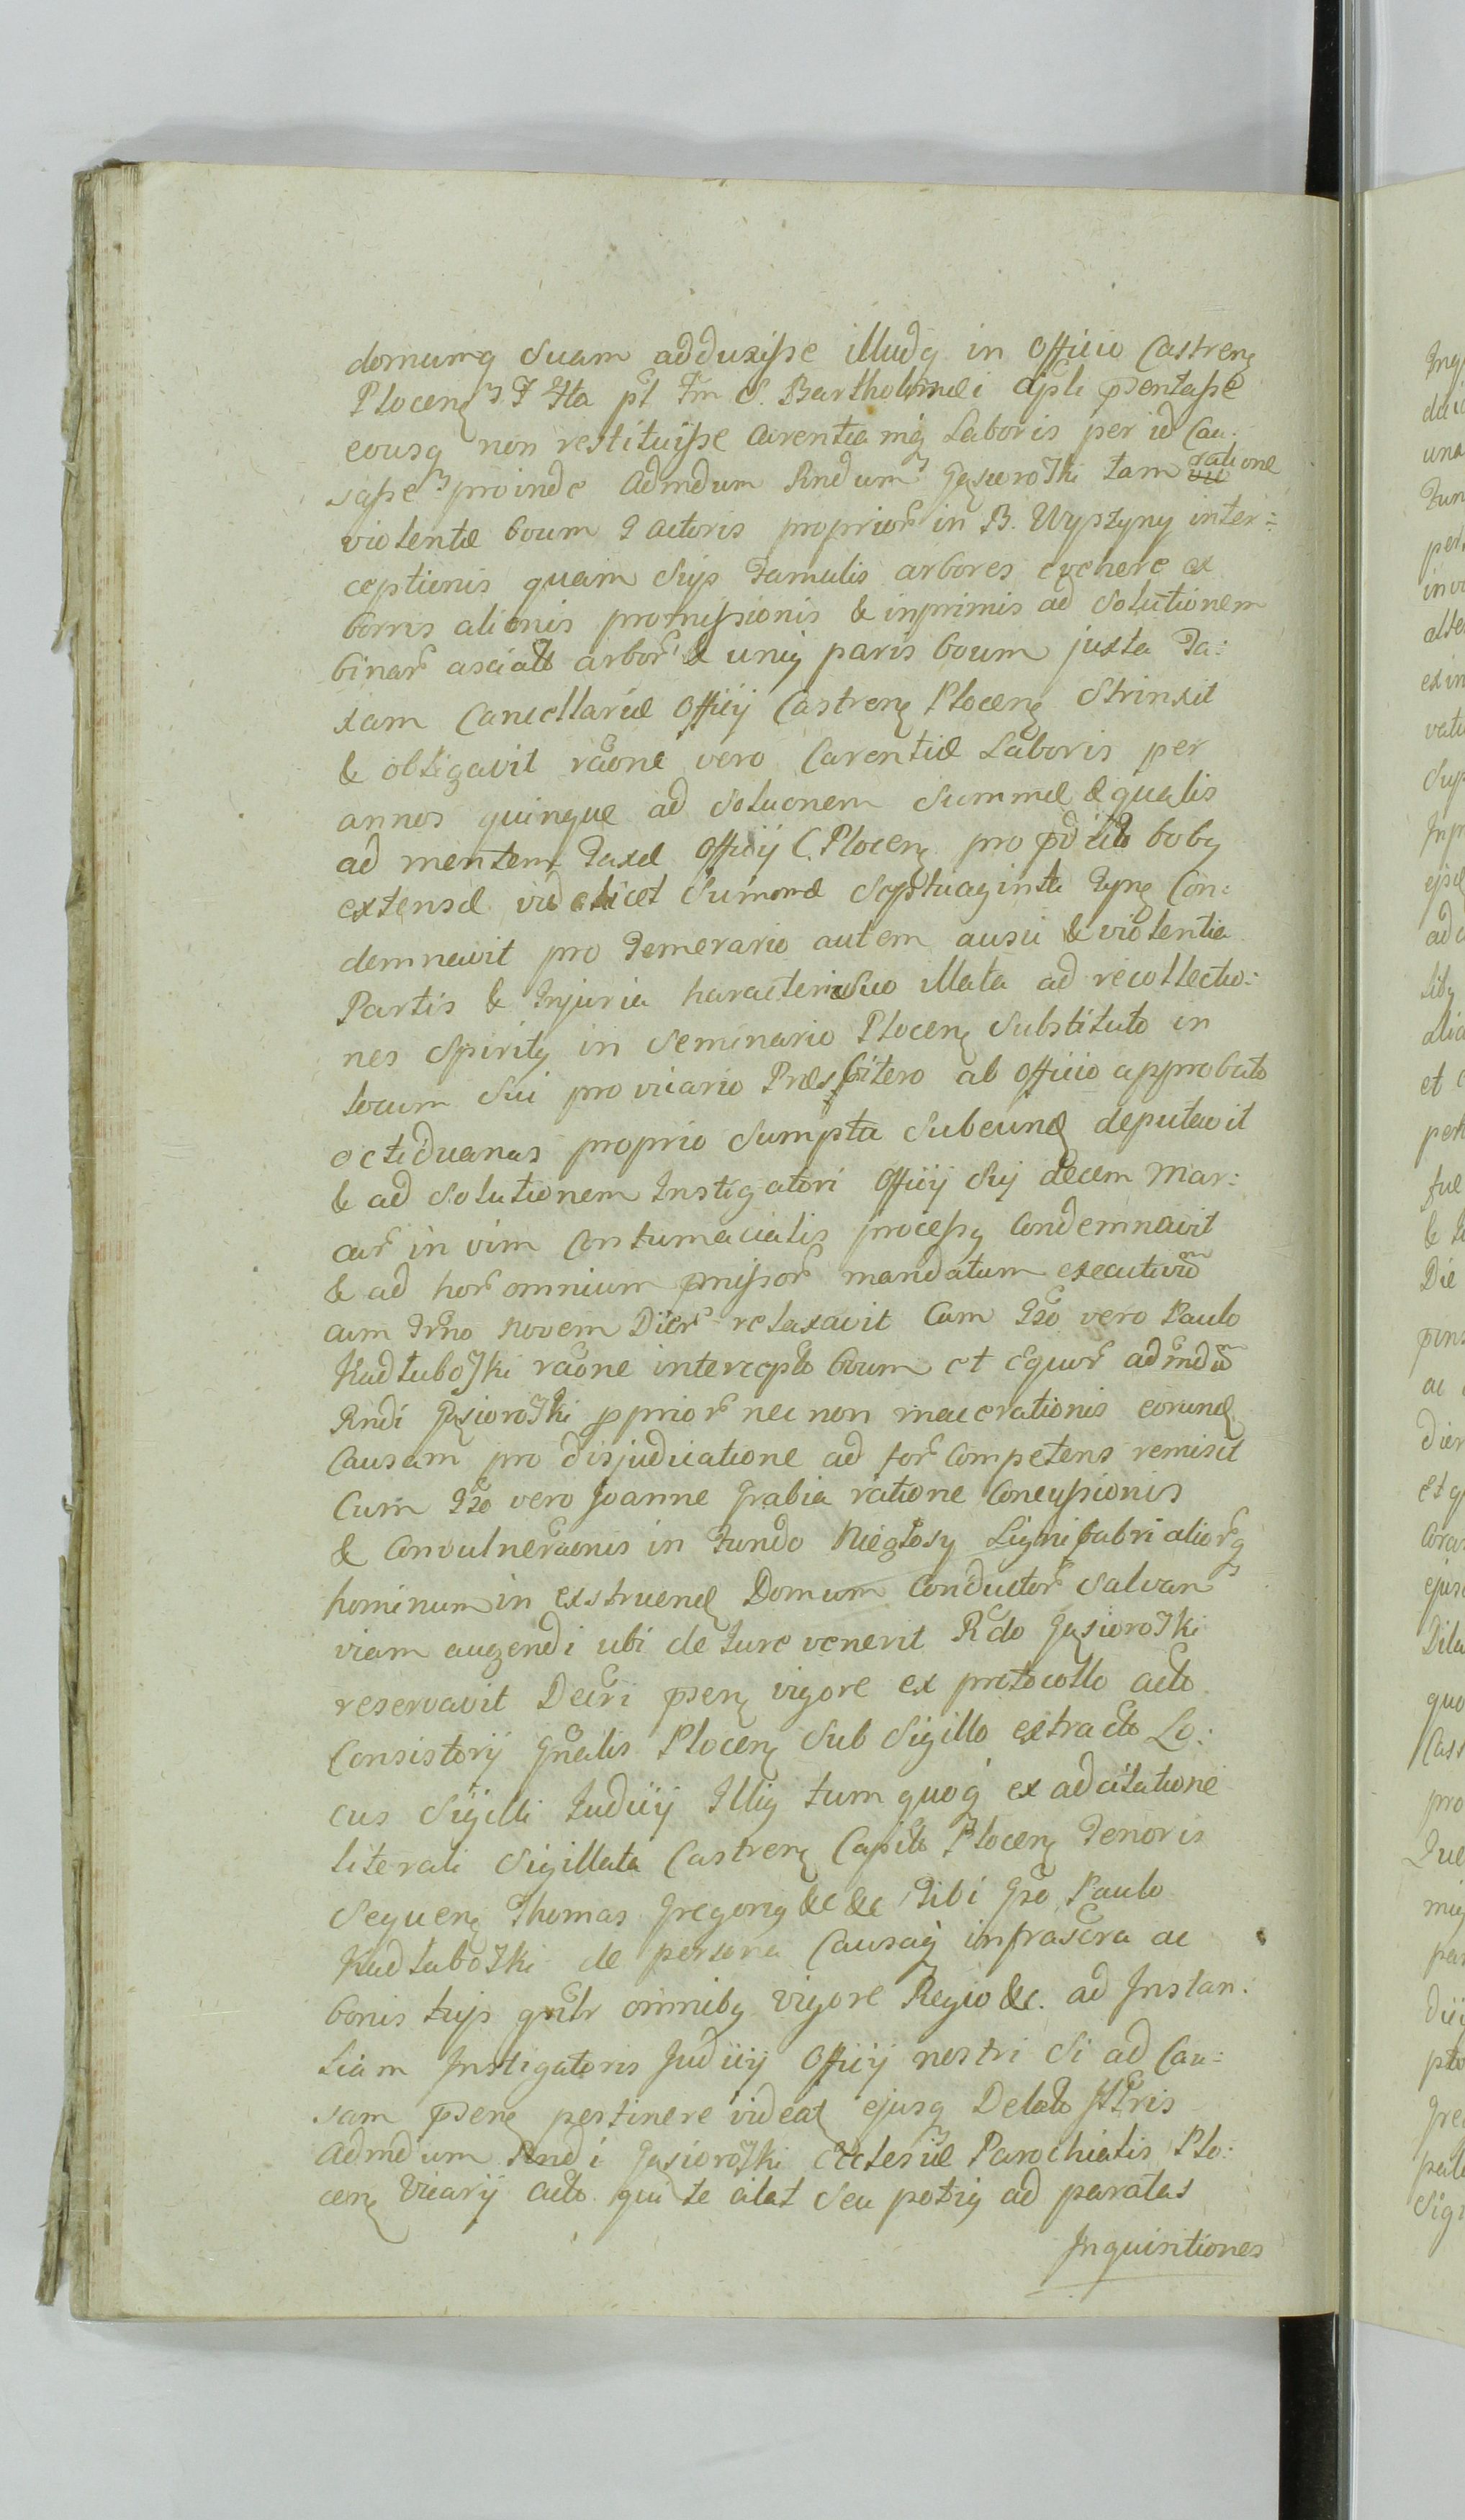 domumq suam adduxisse illudq in Officio Castrenς
Plocenς F Fta pt Fm S. Bartholomæi apli præsentasse
eousq non restituisse Carentiamq Laboris per id Cau:
sasse proinde Admdum Rndum Gąsiorowski tam ratione
violentæ boum actoris proprior in B. Wyszyny inter:
ceptionis quam suis Famulis arbores evehere ex
borris alienis promissionis & inprimis ad Solutionem
binar asciat arbor & uniq paris boum juxta Ta:
xam Cancellariæ Officij Castrenς Plocenς Strinxit
& obligavit raone vero Carentiæ Laboris per
annos quinque ad Soluonem Summæ æqualis
ad mentem Taxæ Officij C. Plocenς pro pdict bobq
extensæ videlicet Summæ Septuaginta Tynς Con:
demnavit pro Temerario autem ausu & violentia
Partis & Injuria haracteri suo illata ad recollectio:
nes Spiritq in Seminario Plocenς Substituto in
locum Sui pro vicario Præsbitero ab Officio approbato
octiduanas proprio Sumptu Subeund deputavit
& ad Solutionem Instigatori Officij Sui decem Mar:
car in vim Contumacialis processq Condemnavit
& ad hor omnium pmissor mandatum executivum
cum Trno novem Dier relaxavit Cum Gso vero Paulo
Kadłubowski raone intercept boum et equor admdum
Rndi Gąsiorowski pprior nec non macerationis eorund
Causam pro disjudicatione ad for Competens remisit
Cum Gso vero Joanne Grabia ratione Concussionis
& Convulneraonis in Fundo Niegłosy Lignifabri aliorq
hominum in exstruend Domum Conductor Salvam
viam augendi ubi de Jure venerit Rdo Gąsiorowski
reservavit Decri psenς vigore ex protocollo acto
Consistorij Gnealis Plocenς Sub Sigillo extracto Lo:
cus Sigilli Judicij Illiq tum quoq ex adcitatione
literali Sigillata Castrenς Capit Plocenς Tenoris
Sequenς Thomas Gregoriq &c &c Tibi Gso Paulo
Kadłubowski de persona Causaq infrascra ac
bonis tuis gnlr omnibq vigore Regio &c. ad Instan:
tiam Instigatoris Judicij Officij nostri Si ad Cau:
sam psenς pertinere videat ejusq Delat Illris
Admdum Rndi Gąsiorowski Ecclesiæ Parochialis Plo:
cenς Vicarij acto qui te citat Seu potiq ad paratas
Inquisitiones